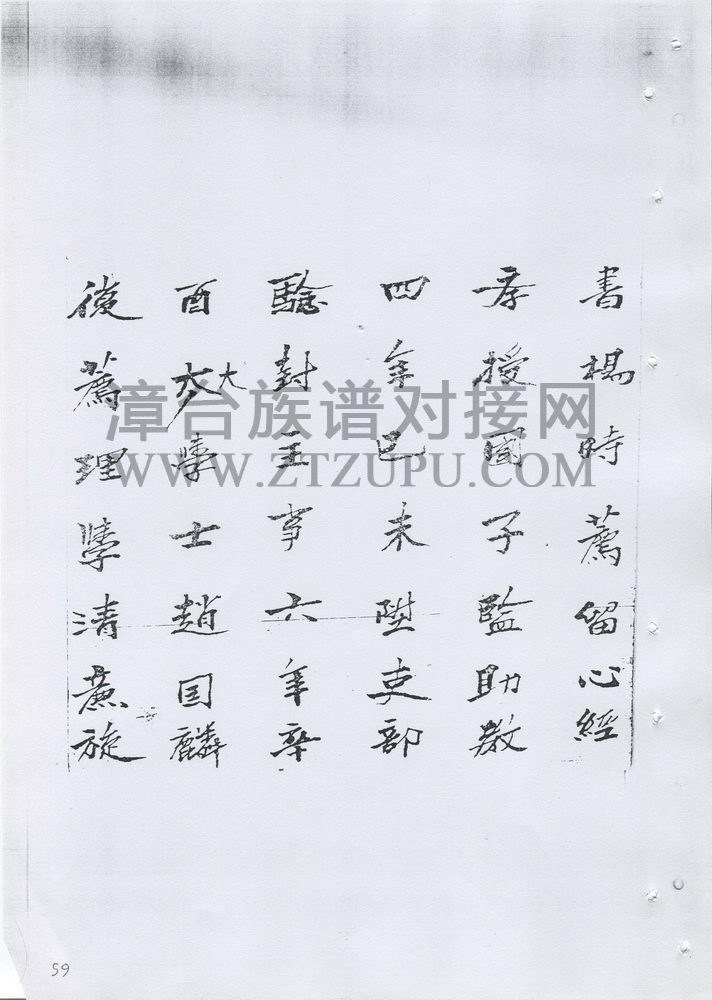 書楊時薦留心經
孝授國子監助教
四年己未陞吏部
驗封主事六年辛
酉大學士趙国麟
復薦理學清蔗旋
漳台族谱对接网
WWW.ZTZUPU.COM
59